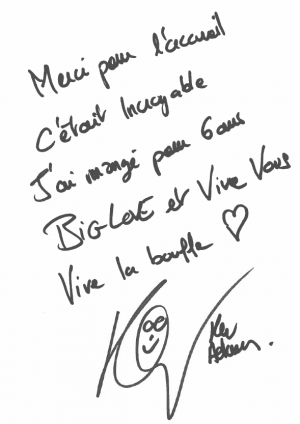 Merci pour l'accueil
C'était Incroyable
J'ai mangé pour 6 ans
BIG LOVE et Vive Vous
Vive la bouffe ♡
Kev
Kev
Adams.